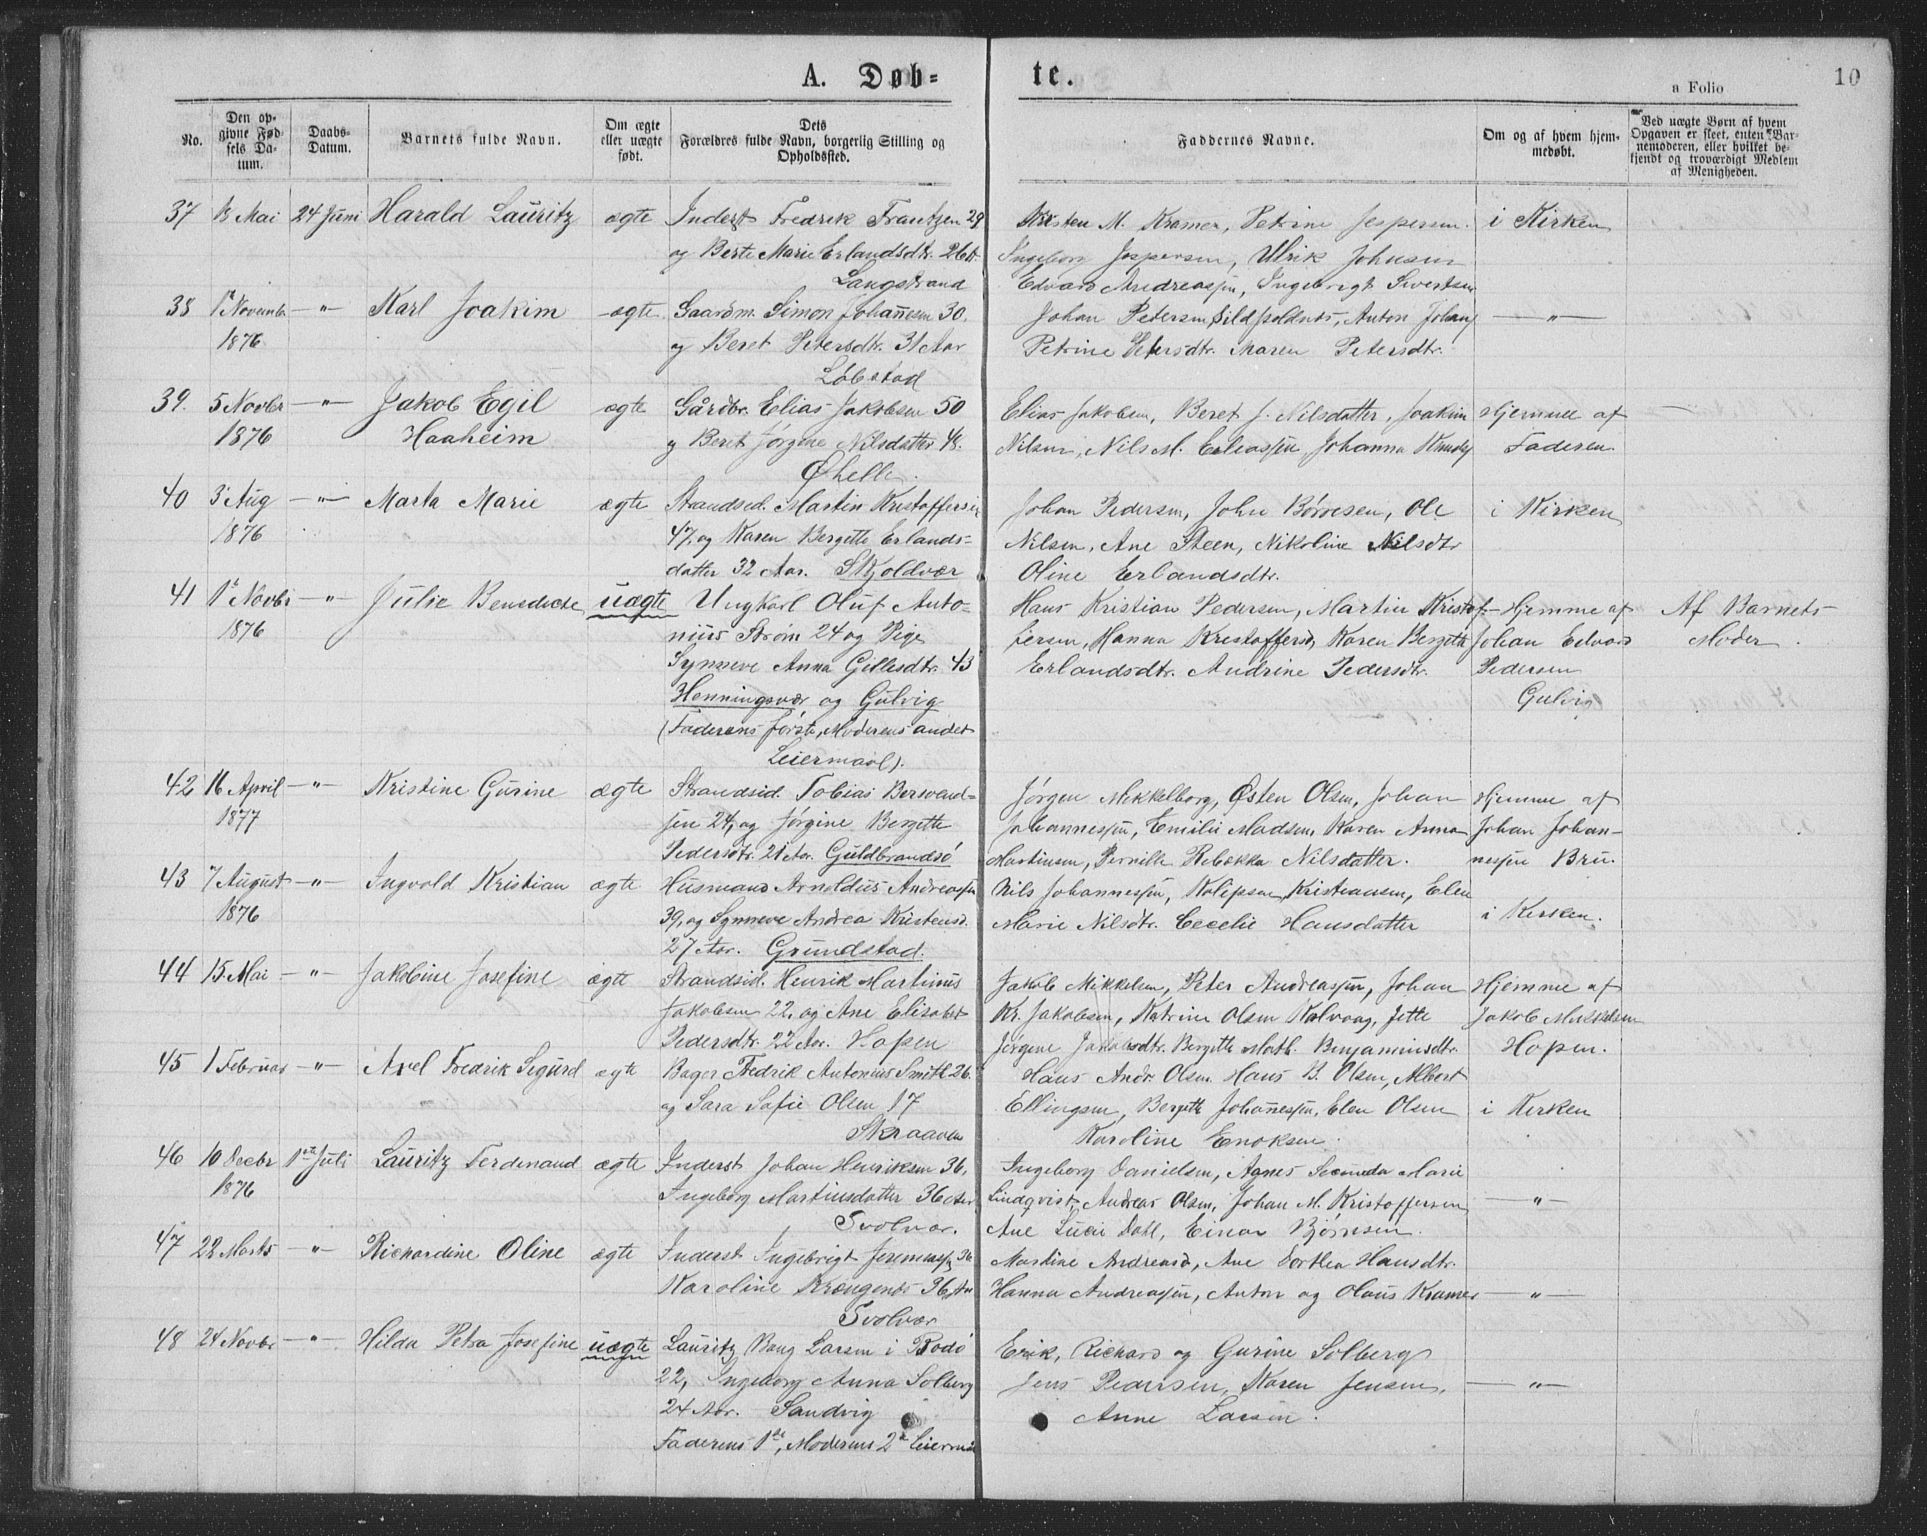 A. Døb=
te.
a Folio
10
No.
Den op-
givne Fød-
sels Da-
tum.
Daabs-
Datum.
Barnets fulde Navn.
Om ægte
eller uægte
født.
Dets
Forældres fulde Navn, borgerlig Stilling og
Opholdssted.
Faddernes Navne.
Om og af hvem hjem-
medøbt.
Ved uægte Børn af hvem
Opgaven er skeet, enten Bar-
nemoderen, eller hvilket be-
kjendt og troværdigt Medlem
af Menigheden.
37 13 Mai 24 Juni Harald Lauritz ægte Inderst Fredrik Frantzen 29
og Berte Marie Erlandsdtr. 26
Langstrand
Kristen M. Kramer, Petrine Jespersen. i Kirken
Ingeborg Jespersen, Ulrik Johnsen
Edvard Andreassen, Ingebrigt Sivertsen
38 1 Novembr —"— Karl Joakim ægte. Gaardm. Simon Johannesen 30.
1876 og Beret Petersdtr. 31 Aar
Löbstad
Johan Petersen, Anton Johans —"—
Petrine Petersdtr. Maren Petersdtr.
39. 5 Novbr —"— Jakob Egil ægte Gårdbr. Elias Jakobsen 50
1876 Haaheim og Beret Jørgine Nilsdatter 48.
Øhelle.
Elias Jakobsen, Beret J. Nilsdatter, Joakim Hjemme af
Nilsen, Nils M. Eliassen, Johanna Faderen
40 3 Aug —"— Marta Marie ægte Strandsid. Martin Kristoffersen
1876 47, og Karen Bergitte Erlands=
datter 32 Aar. Skjoldvær
Johan Pedersen, John Børresen, Ole i Kirken
Nilsen, Ane Steen, Nikoline Nilsdtr
Oline Erlandsdtr.
41 1 Novbr —"— Julie Benedicte uægte Ungkarl Oluf Anto=
1876 nius Strøm 24 og Pige
Synneve Anna Gellesdtr. 43
Henningsvær og Gulvig
(Faderens første, Moderens andet
Leiermaal).
Hans Kristian Pedersen, Martin Kristof- Hjemme af Af Barnets
fersen, Hanna Kristoffersd, Karen Bergitte Johan Edvard Moder.
Erlandsdtr. Andrine Pedersdtr. Pedersen
Gulvig
42 16 April —"— Kristine Gurine ægte Strandsid. Tobias Bersvend=
1877 sen 24, og Jørgine Bergitte
Pedersdtr. 21 Aar. Guldbrandsö
Jørgen Mikkelborg, Østen Olsen, Johan Hjemme af
Johannessen, Emilie Madsen, Karen Anna Johan Johan-
Martinsen, Pernille Rebekka Nilsdatter. nessen Bru.
43 7 August —"— Ingvold Kristian ægte Husmand Arnoldus Andreassen
1876 39, og Synneve Andrea Kristensd.
27 Aar. Grundstad.
Nils Johannessen, Kristiansen, Elen
Marie Nilsdtr. Cecelie Hansdatter i Kirken.
44 15 Mai —"— Jakobine Josefine ægte Strandsid. Henrik Martinus
Jakobsen 22, og Ane Elisabet
Pedersdtr. 22 Aar. Hopen
Jakob Mikkelsen, Peter Andreassen, Johan Hjemme af
Kr. Jakobsen, Katrine Olsen Kalvaag, Jette Jakob Mikkelsen
Jørgine Jakobsdtr. Bergitte Math. Benjaminsdtr. Hopen.
45 1 Februar —"— Axel Fredrik Sigurd ægte Bager Fredrik Antonius Smith 26.
og Sara Sofie Olsen 17
Skraaven
Hans Andr. Olsen. Hans B. Olsen, Albert
Ellingsen, Bergitte Johannessen, Elen Olsen i Kirken
Karoline Enoksen.
46 10 Decbr 1ste Juli Lauritz Ferdinand ægte Inderst Johan Henriksen 36,
1876 Ingeborg Martinsdatter 36 Aar
Svolvær.
Ingeborg Danielsen, Agnes Secunda Marie
Lindqvist, Andreas Olsen, Johan M. Kristoffersen —"—
Ane Lucie Dahl, Einar Bjørnsen.
47 22 Marts —"— Richardine Oline ægte Inderst Ingebrigt Jeremiassen 36
Karoline 36 Aar
Svolvær
Martine Andreasd, Ane Dorthea Hansdtr.
Hanna Andreassen, Anton og Olaus Kramer —"—
48 24 Novbr —"— Hilda Petra Josefine uægte Lauritz Bang Larsen i Bodö
22, Ingeborg Anna Solberg
24 Aar. Sandvig
Faderens 1ste, Moderens 2det Leierm
Erik, Richard og Gurine Solberg
Jens Pedersen, Karen Jensen, —"—
Anne Larsen.